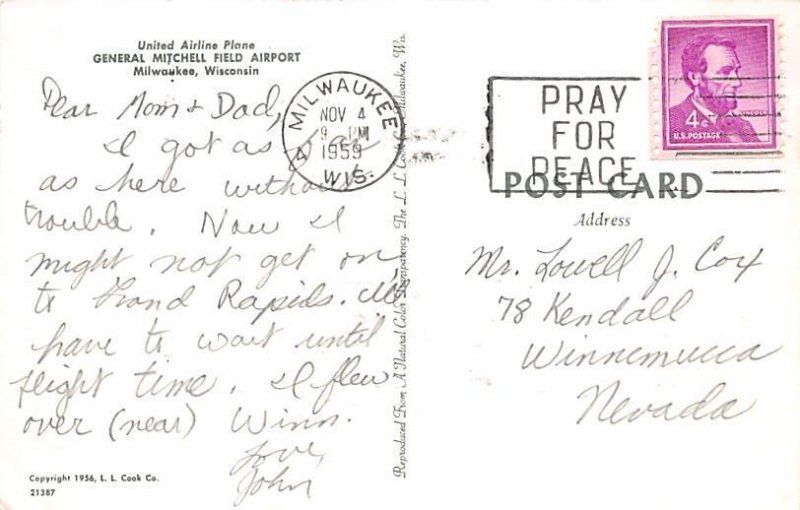 United Airline Plane
GENERAL MITCHELL FIELD AIRPORT
Milwaukee, Wisconsin
Dear Mom & Dad,
I got as far
as here without
trouble. Now I
might not get on
to Grand Rapids.
have to wait until
flight time. I flew
over (near) Winn.
Love,
John
Copyright 1956, L. L. Cook Co.
21387
Reproduced From A Natural Color Transparency. The L. L. Cook Co., Milwaukee, Wis.
MILWAUKEE
NOV 4
9 PM
1959
WIS.
4
PRAY
FOR
PEACE
LINCOLN
4¢
U.S. POSTAGE
POST CARD
Address
Mr. Lowell J. Cox
78 Kendall
Winnemucca
Nevada